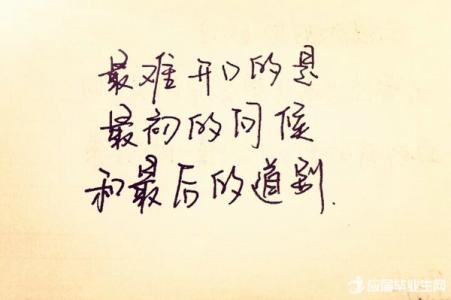 最难开口的是
最初的问候
和最后的道别.
应届毕业生网